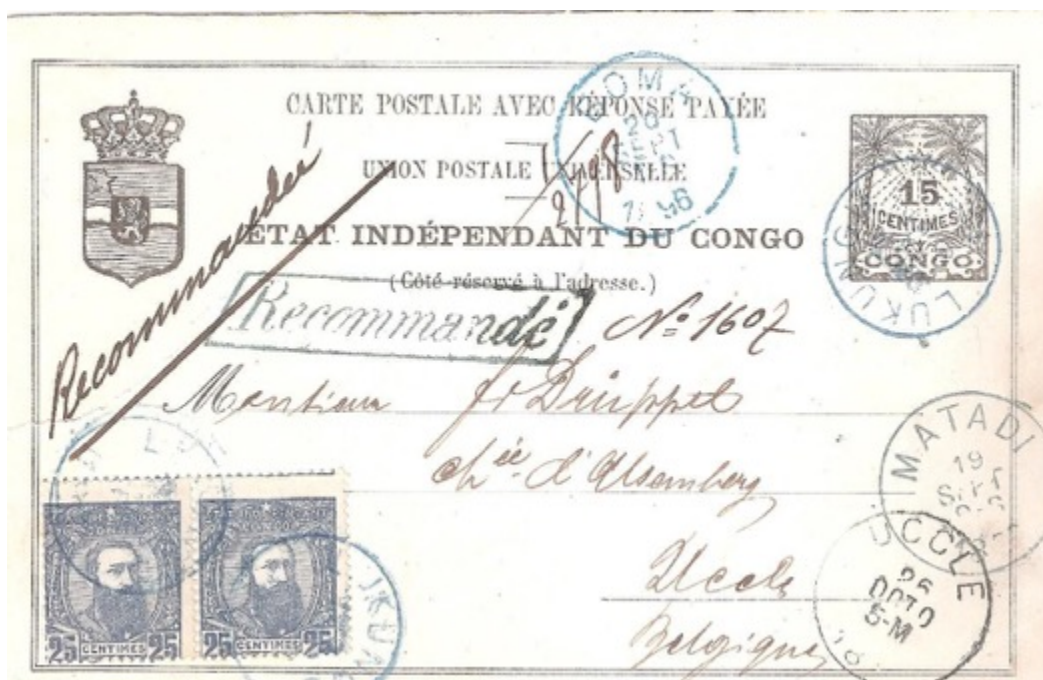 CARTE POSTALE AVEC RÉPONSE PAYÉE
UNION POSTALE UNIVERSELLE
ÉTAT INDÉPENDANT DU CONGO
(Côté réservé à l'adresse.)
15
CENTIMES
CONGO
BOMA
20
SEPT
LUKUNGU
Recommandée
Recommandé
No 1607
Monsieur
chée d'Alsemberg
Uccle
Belgique
MATADI
19
UCCLE
26
OCTO
5-M
LUKUNGU
25 CENTIMES 25
25 CENTIMES 25